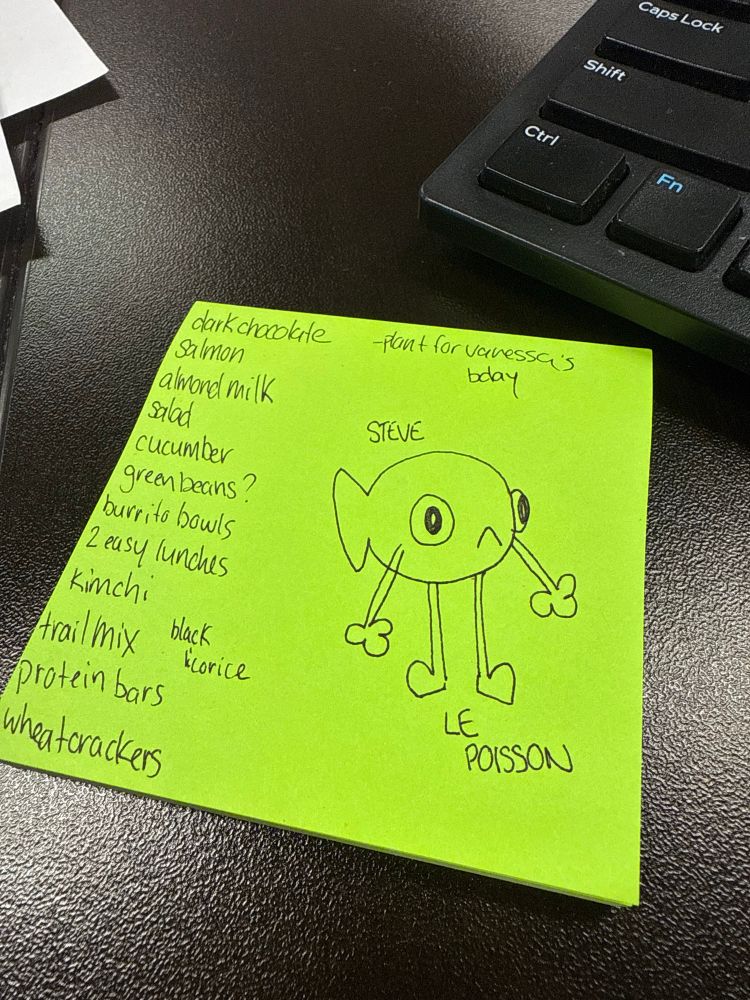 Caps Lock
Shift
Ctrl
Fn
dark chocolate
salmon
almond milk
salad
cucumber
green beans?
burrito bowls
2 easy lunches
kimchi
trail mix
black
licorice
protein bars
wheat crackers
-plant for vanessa's
bday
STEVE
LE
POISSON